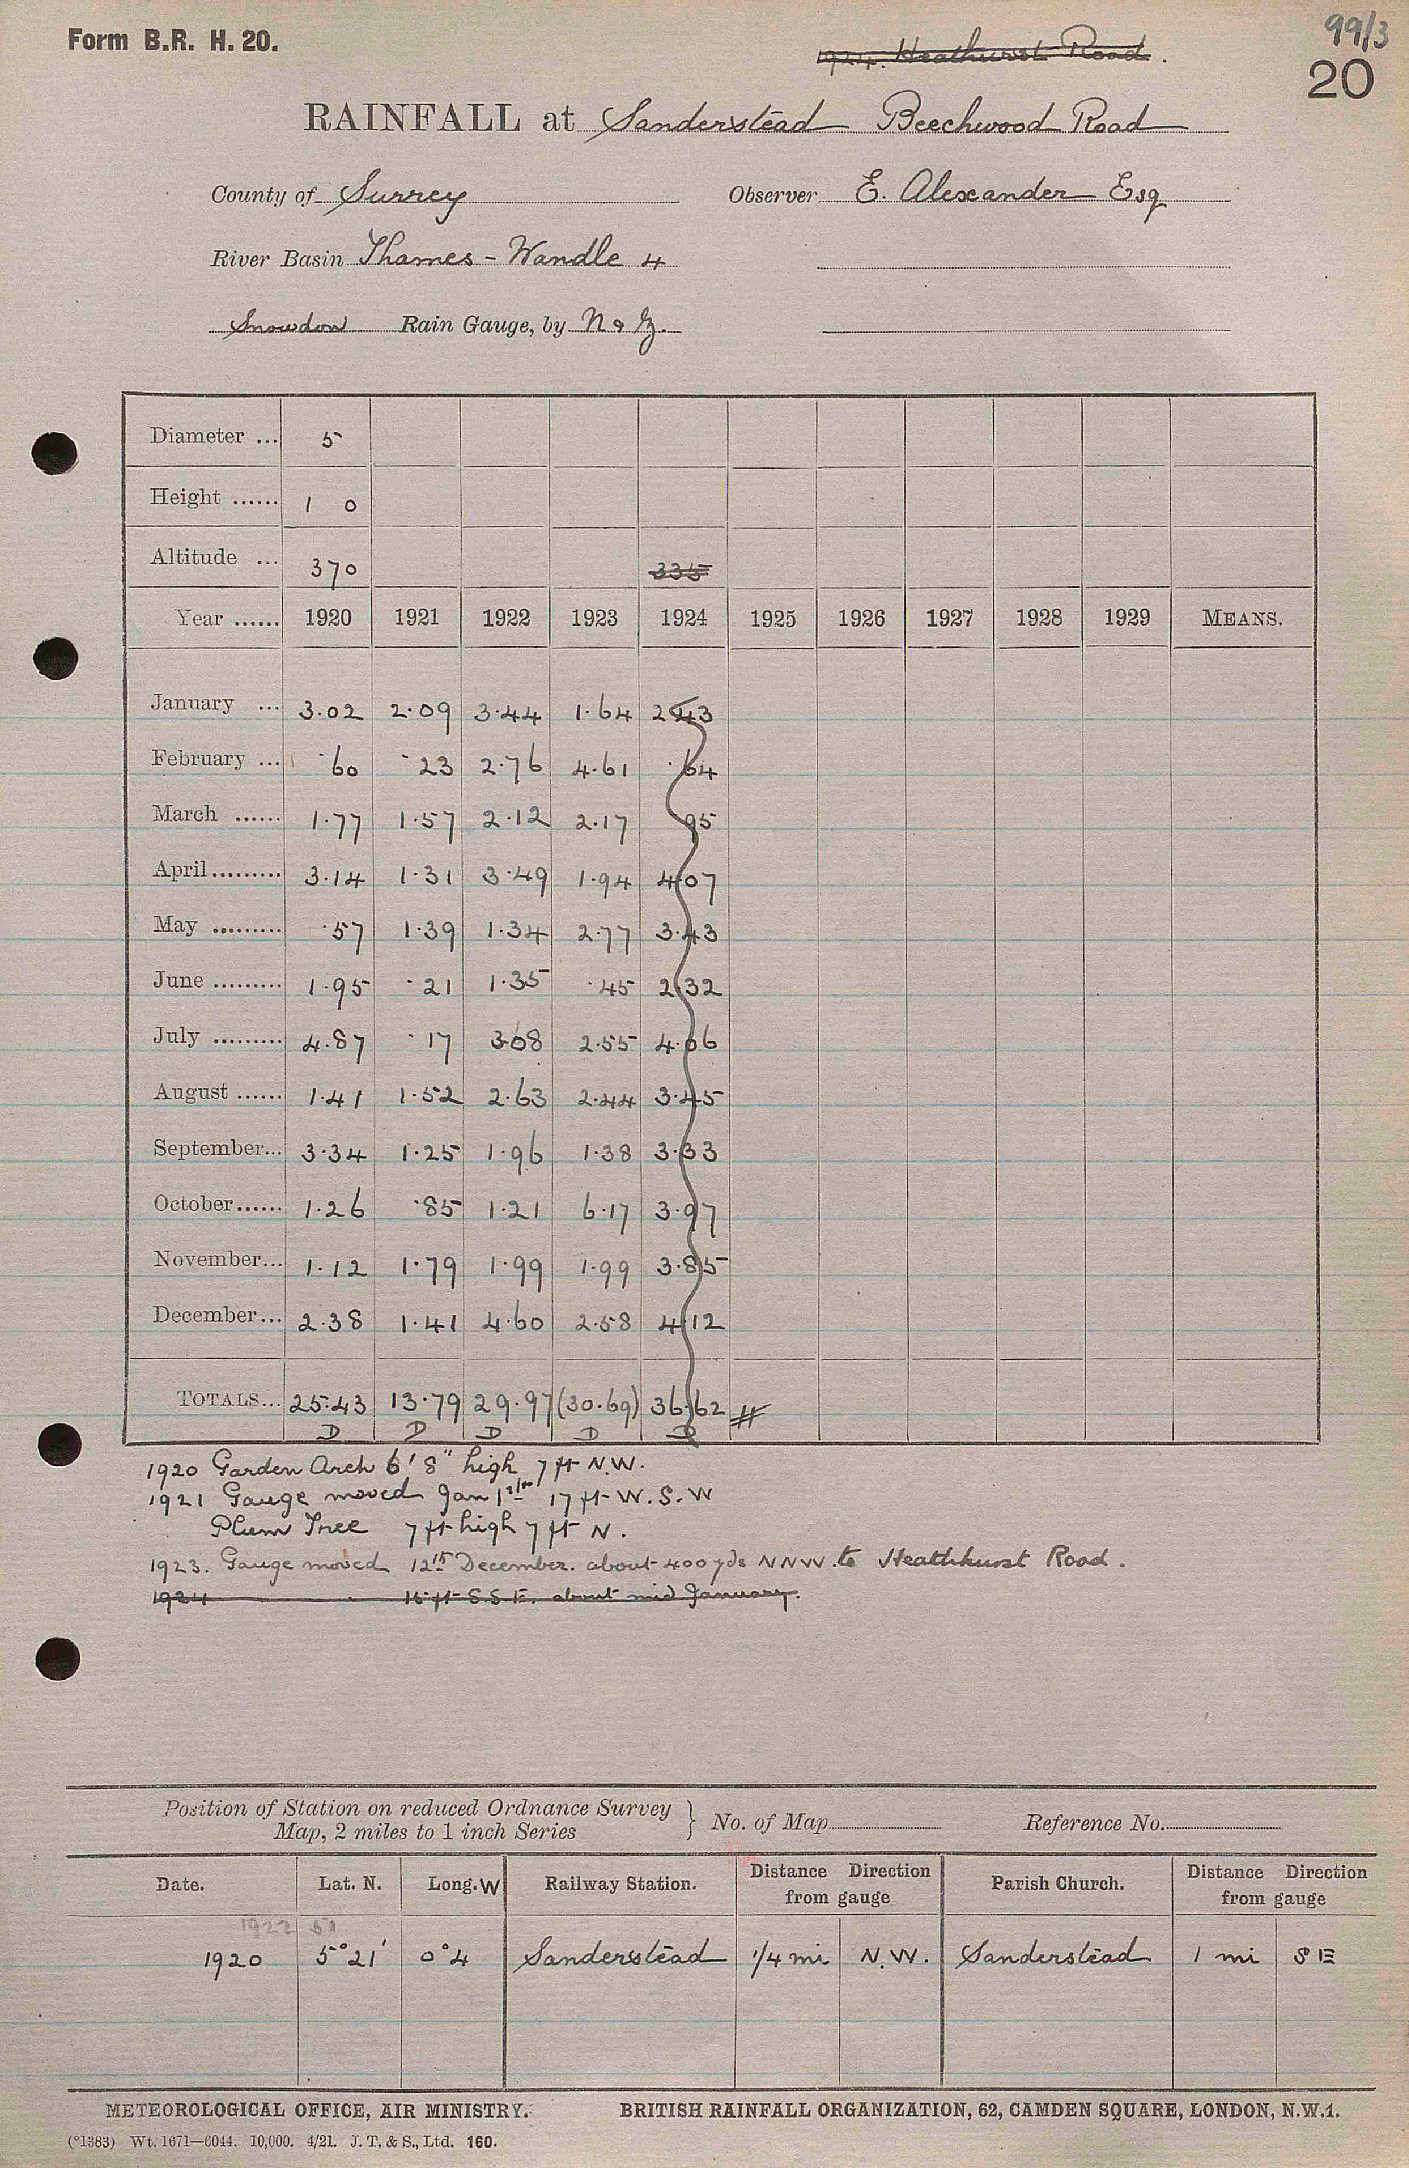 Form B.R. H. 20.
99/3
1924. Heathurst Road.
20
RAINFALL at Sanderstead Beechwood Road
County of Surrey Observer E. Alexander Esq
River Basin Thames - Wandle 4
Snowdon Rain Gauge, by N & Z.
Diameter ... 5
Height ...... 1 0
Altitude ... 370 335
Year ...... 1920 1921 1922 1923 1924 1925 1926 1927 1928 1929 MEANS.
January ... 3.02 2.09 3.44 1.64 2.43
February ... .60 .23 2.76 4.61 .64
March ...... 1.77 1.57 2.12 2.17 .95
April ......... 3.14 1.31 3.49 1.94 4.07
May ......... .57 1.39 1.34 2.77 3.43
June ......... 1.95 .21 1.35 .45 2.32
July ......... 4.87 .17 3.08 2.55 4.06
August ...... 1.41 1.52 2.63 2.44 3.45
September... 3.34 1.25 1.96 1.38 3.33
October ...... 1.26 .85 1.21 6.17 3.97
November... 1.12 1.79 1.99 1.99 3.85
December... 2.38 1.41 4.60 2.58 4.12
TOTALS... 25.43 13.79 29.97 (30.69) 36.62 #
D D D D D
1920 Garden Arch 6' 8" high 7 ft N.W.
1921 Gauge moved Jan 1st 17 ft W.S.W
Plum Tree 7 ft high 7 ft N.
1923. Gauge moved 12th December. about 400 yds NNW. to Heathhurst Road.
1924 15 ft S.S.E. about mid January.
Position of Station on reduced Ordnance Survey
Map, 2 miles to 1 inch Series } No. of Map Reference No.
Date. Lat. N. Long. W Railway Station. Distance Direction from gauge Parish Church. Distance Direction from gauge
1922 51
1920 5°21' 0°4 Sanderstead 1/4 mi N.W. Sanderstead 1 mi SE
METEOROLOGICAL OFFICE, AIR MINISTRY. BRITISH RAINFALL ORGANIZATION, 62, CAMDEN SQUARE, LONDON, N.W.1.
(*1383) Wt. 1671—6044. 10,000. 4/21. J. T. & S., Ltd. 160.